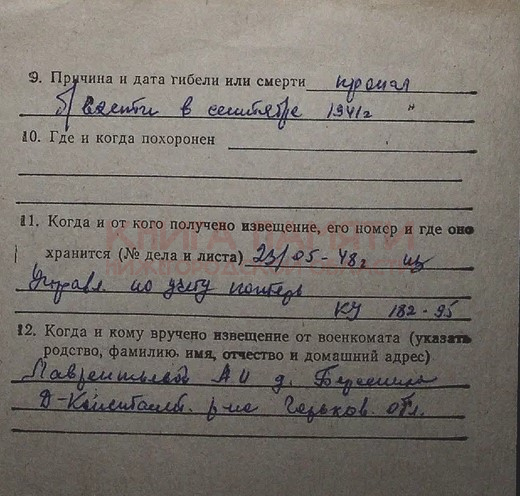 9. Причина и дата гибели или смерти пропал
б/вести в сентябре 1941 г "
10. Где и когда похоронен
11. Когда и от кого получено извещение, его номер и где оно
хранится (№ дела и листа) 23/05-48г из
Управл. по учету потерь
КУ 182-95
12. Когда и кому вручено извещение от военкомата (указать
родство, фамилию, имя, отчество и домашний адрес)
Лаврентьевой А И д.
Д-Констант. р-на Горьков. обл.
КНИГА ПАМЯТИ
НИЖЕГОРОДСКОЙ ОБЛАСТИ